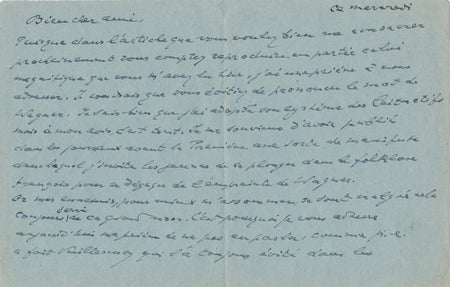 ce mercredi
Bien cher ami,
Puisque dans l'article que vous voulez bien me consacrer
prochainement vous comptez reproduire en partie celui
magnifique que vous avez lu, j'ai une prière à vous
adresser. Je voudrais que vous évitiez de prononcer le mot de
Wagner. Je sais bien que j'ai adopté son système des leitmotifs
mais à mon avis c'est tout. Je me souviens d'avoir publié
dans les journaux avant la Première une sorte de manifeste
dans lequel j'invite les jeunes de se plonger dans le folklore
français pour se dégager de l'empreinte de Wagner.
Or mes ennemis, pour mieux m'assommer se sont malgré cela
toujours servi de ce grand nom. C'est pourquoi je vous adresse
aujourd'hui ma prière de ne pas en parler, comme
a fait Vuillermoz qui l'a toujours évité dans les